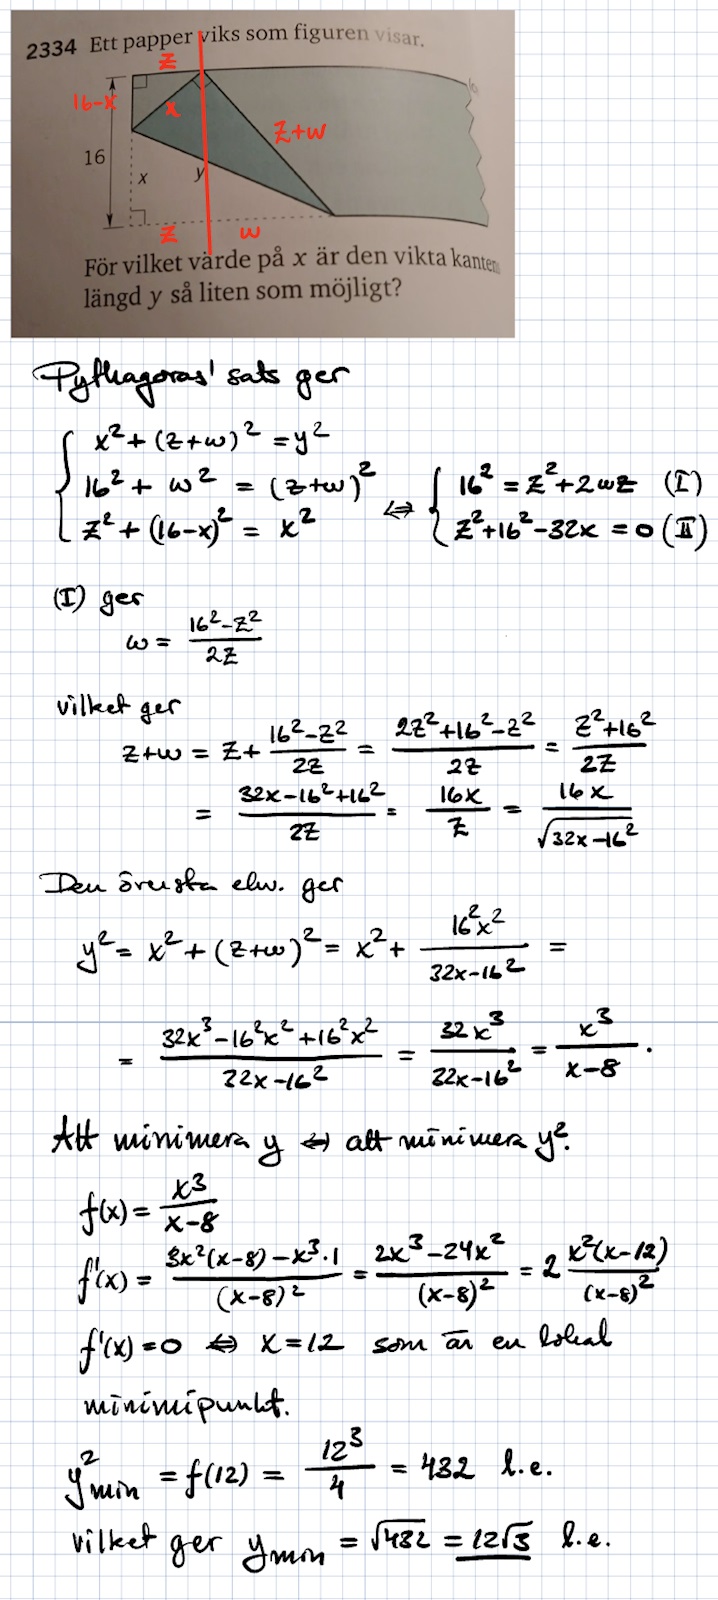 2334 Ett papper viks som figuren visar.
z
16-x
x
z+w
16
x
y
z
w
För vilket värde på x är den vikta kantens
längd y så liten som möjligt?
Pythagoras' sats ger
{ x² + (z+w)² = y²
16² + w² = (z+w)² ⇔ { 16² = z² + 2wz (I)
z² + (16-x)² = x² z² + 16² - 32x = 0 (II)
(I) ger
w = (16² - z²)/(2z)
vilket ger
z+w = z + (16² - z²)/(2z) = (2z² + 16² - z²)/(2z) = (z² + 16²)/(2z)
= (32x - 16² + 16²)/(2z) = 16x/z = 16x/√(32x - 16²)
Den översta ekv. ger
y² = x² + (z+w)² = x² + 16²x²/(32x - 16²) =
= (32x³ - 16²x² + 16²x²)/(32x - 16²) = 32x³/(32x - 16²) = x³/(x-8).
Att minimera y ⇔ att minimera y².
f(x) = x³/(x-8)
f'(x) = (3x²(x-8) - x³·1)/(x-8)² = (2x³ - 24x²)/(x-8)² = 2 x²(x-12)/(x-8)²
f'(x) = 0 ⇔ x = 12 som är en lokal
minimipunkt.
y²min = f(12) = 12³/4 = 432 l.e.
vilket ger ymin = √432 = 12√3 l.e.